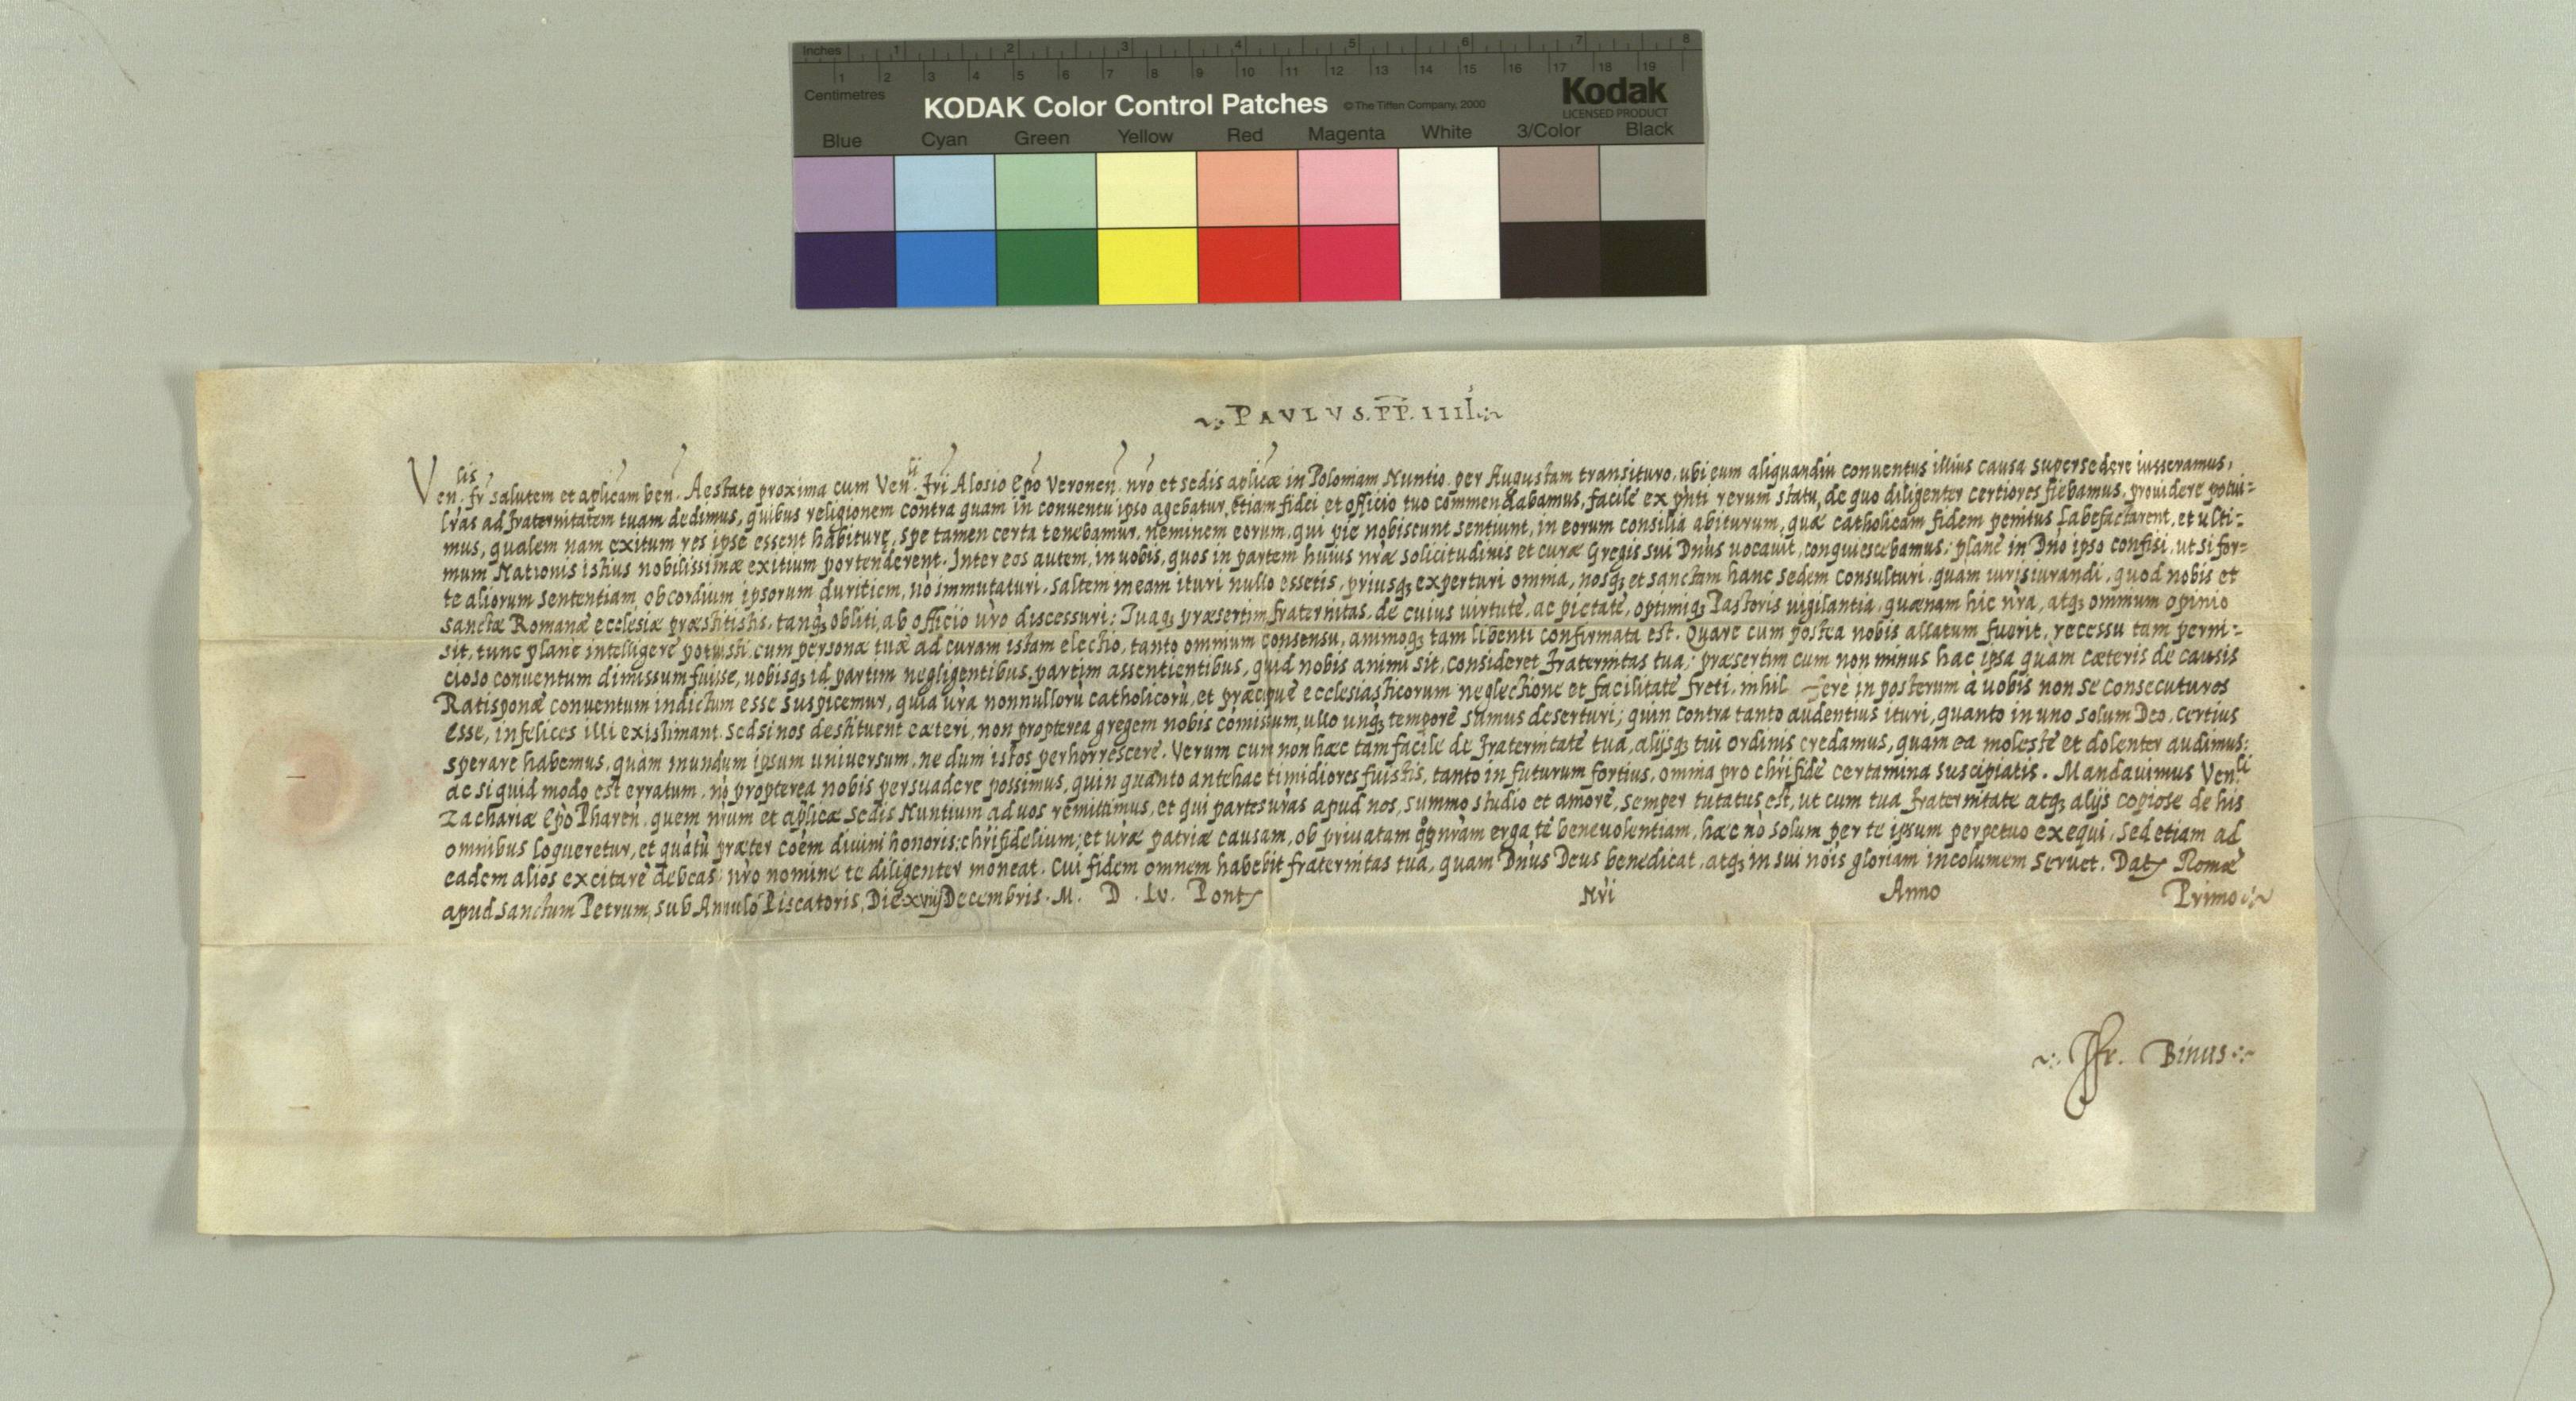 Inches 1 2 3 4 5 6 7 8
1 2 3 4 5 6 7 8 9 10 11 12 13 14 15 16 17 18 19
Centimetres
KODAK Color Control Patches © The Tiffen Company, 2000 Kodak
LICENSED PRODUCT
Blue Cyan Green Yellow Red Magenta White 3/Color Black
PAVLVS. PP. IIII.
Ven. lis fr salutem et aplicam ben. Aestate proxima cum Ven. li Fri Alosio Epo Veronen. nro et sedis aplicæ in Poloniam Nuntio per Augustam transituro, ubi eum aliquandiu conuentus illius causa supersedere iusseramus,
lras ad fraternitatem tuam dedimus, quibus religionem contra quam in conuentu ipso agebatur, etiam fidei et officio tuo commendabamus, facile ex pnti rerum statu, de quo diligenter certiores fiebamus, prouidere potui=
mus, qualem nam exitum res ipse essent habiturę, spe tamen certa tenebamur, neminem eorum, qui pie nobiscunt sentiunt, in eorum consilia abiturum, quæ catholicam fidem penitus labefactarent, et ulti=
mum Nationis istius nobilissimæ exitium portenderent. Inter eos autem, in uobis, quos in partem huius nræ solicitudinis et curæ Gregis sui Dnus uocauit, conquiescebamus; plane in Dno ipso confisi, ut si for=
te aliorum sententiam, ob cordium ipsorum duritiem, nō immutaturi, saltem in eam ituri nullo essetis, priusq; experturi omnia, nosq; et sanctam hanc sedem consulturi, quam iurisiurandi, quod nobis et
sanctæ Romanæ ecclesiæ præstitistis, tanq; obliti, ab officio uro discessuri; Tuaq; præsertim fraternitas, de cuius uirtute, ac pietate, optimiq; Pastoris uigilantia, quænam hic nra, atq; omnium opinio
sit, tunc plane intelligere potuisti, cum personæ tuæ ad curam istam electio, tanto omnium consensu, animoq; tam libenti confirmata est. Quare cum postea nobis allatum fuerit, recessu tam perni=
cioso conuentum dimissum fuisse, uobisq; id partim negligentibus, partim assentientibus, quid nobis animi sit, consideret Fraternitas tua; præsertim cum non minus hac ipsa quàm cæteris de causis
Ratisponæ conuentum indictum esse suspicemur, quia ura nonnullorū catholicorū, et præcipue ecclesiasticorum neglectione et facilitate freti, nihil fere in posterum à uobis non se consecuturos
esse, infelices illi existimant. Sed si nos destituent cæteri, non propterea gregem nobis comissum, ullo unq; tempore sumus deserturi; quin contra tanto audentius ituri, quanto in uno solum Deo, certius
sperare habemus, quàm mundum ipsum uniuersum, ne dum istos perhorrescere. Verum cum non hæc tam facile de Fraternitate tua, alijsq; tui ordinis credamus, quam ea moleste et dolenter audimus;
ac si quid modo est erratum, nō propterea nobis persuadere possimus, quin quanto antehac timidiores fuistis, tanto in futurum fortius, omnia pro chri fide certamina suscipiatis. Mandauimus Ven. li
Zachariæ Epo Pharen. quem nrum et aplicæ Sedis Nuntium ad uos remittimus, et qui partes uras apud nos, summo studio et amore, semper tutatus est, ut cum tua Fraternitate atq; alijs copiose de his
omnibus loqueretur, et quātū præter coem diuini honoris, chrifidelium, et uræ patriæ causam, ob priuatam nram erga te beneuolentiam, hæc nō solum per te ipsum perpetuo exequi, sed etiam ad
eadem alios excitare debeas; nro nomine te diligenter moneat. Cui fidem omnem habebit fraternitas tua, quam Dnus Deus benedicat, atq; in sui nois gloriam incolumem seruet. Dat, Romæ
apud Sanctum Petrum, sub Annulo Piscatoris, Die xviij Decembris. M. D. Lv. Pont, Nri Anno Primo
Fr. Binus